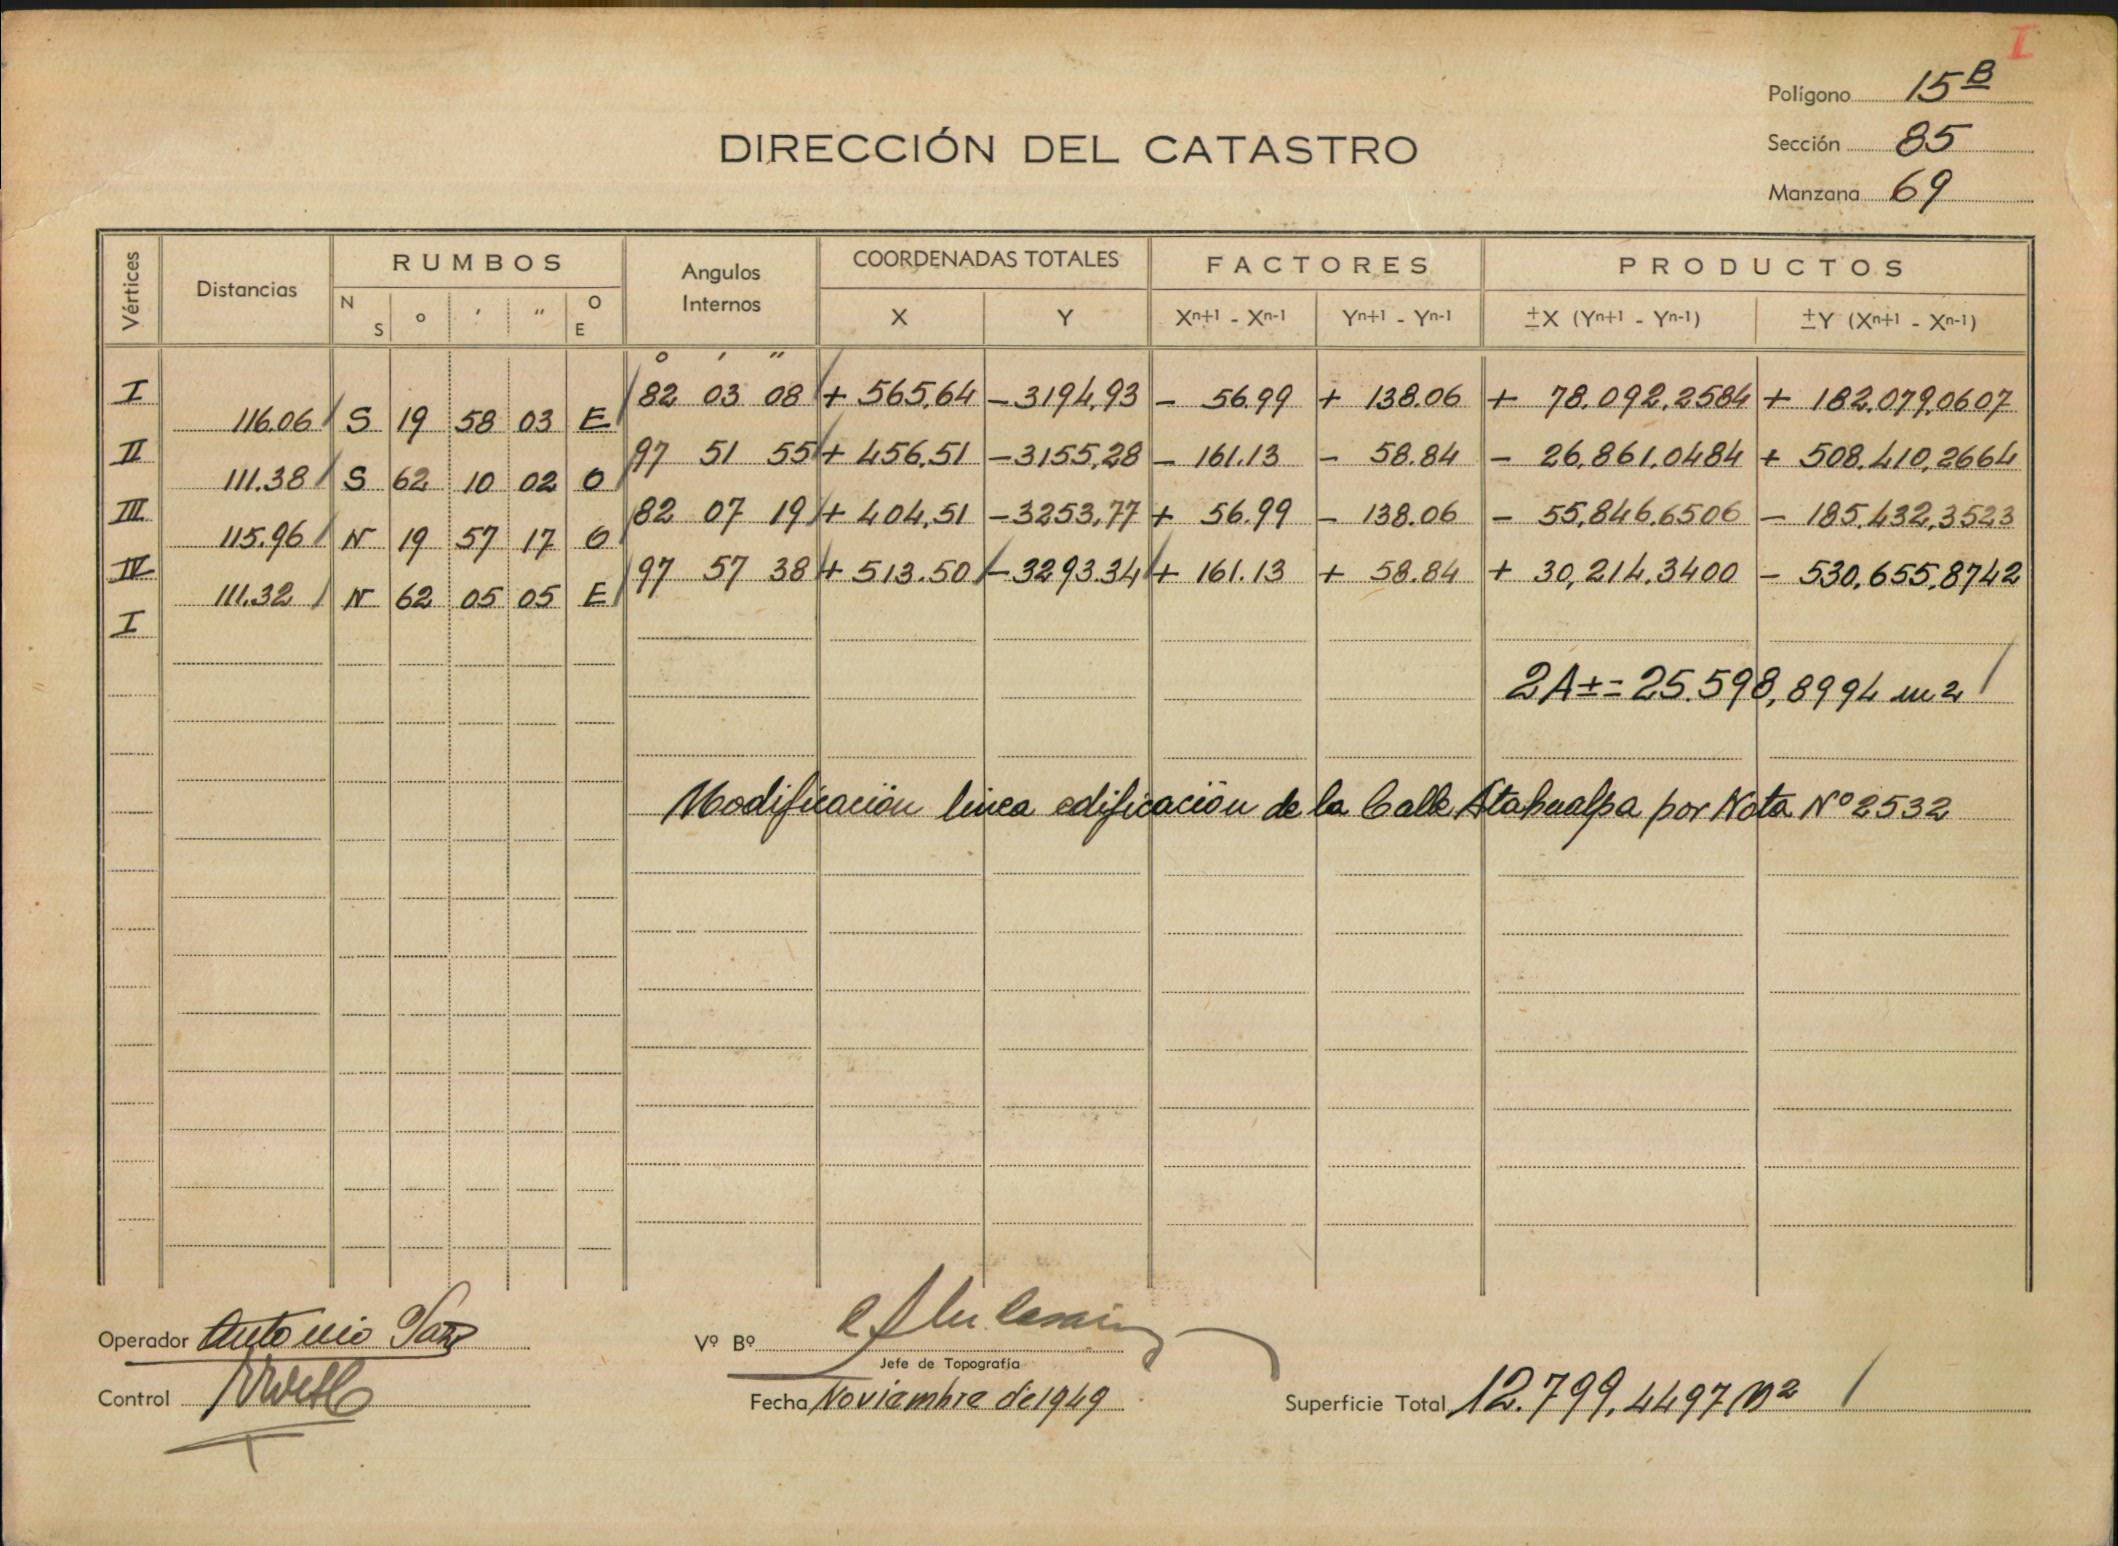 I
Polígono 15B
DIRECCIÓN DEL CATASTRO
Sección 85
Manzana 69
Vértices Distancias RUMBOS Angulos Internos COORDENADAS TOTALES FACTORES PRODUCTOS
N S ° ' " O E X Y Xn+1 - Xn-1 Yn+1 - Yn-1 ±X (Yn+1 - Yn-1) ±Y (Xn+1 - Xn-1)
° ' "
I 82 03 08 + 565,64 - 3194,93 - 56.99 + 138.06 + 78.092,2584 + 182.079,0607
116.06 S 19 58 03 E
II 97 51 55 + 456,51 - 3155,28 - 161.13 - 58.84 - 26.861,0484 + 508.410,2664
111.38 S 62 10 02 O
III 82 07 19 + 404,51 - 3253,77 + 56.99 - 138.06 - 55,846,6506 - 185.432,3523
115.96 N 19 57 17 O
IV 97 57 38 + 513.50 - 3293.34 + 161.13 + 58.84 + 30,214,3400 - 530,655,8742
111.32 N 62 05 05 E
I
2A±= 25.598,8994 m2
Modificación linea edificación de la Calle Atahualpa por Nota Nº 2532
Operador Antonio
Vº Bº
Jefe de Topografía
Control
Fecha Noviembre de 1949
Superficie Total 12.799,4497 m2